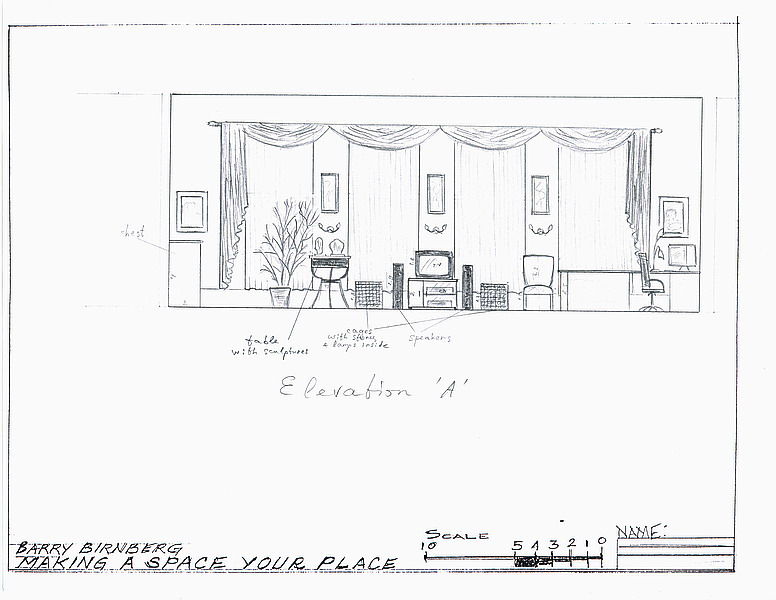 chest
table
with sculptures
cages
with stones
& lamps inside
speakers
Elevation 'A'
BARRY BIRNBERG
MAKING A SPACE YOUR PLACE
SCALE
10 5 4 3 2 1 0
NAME: